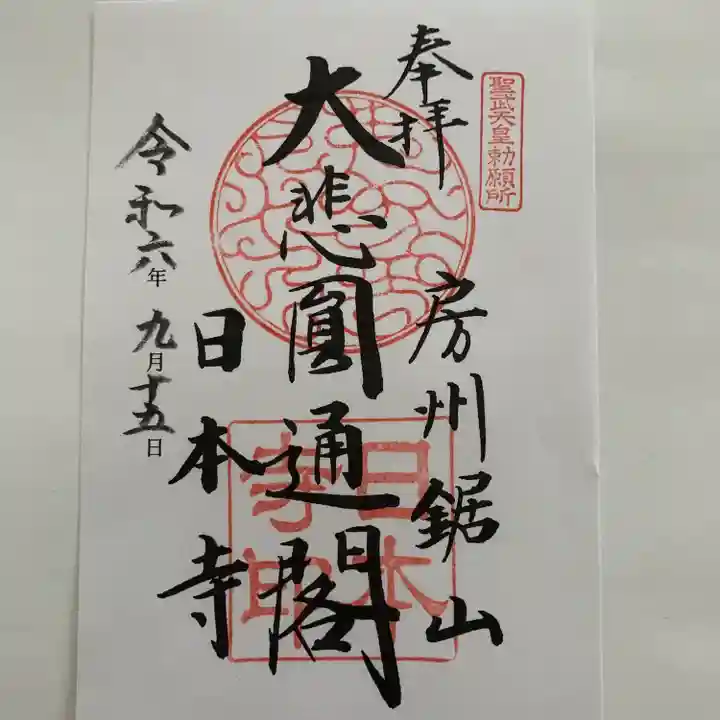 聖武天皇勅願所
奉拝
房州鋸山
大悲圓通閣
日本寺
日本寺印
令和六年九月十五日